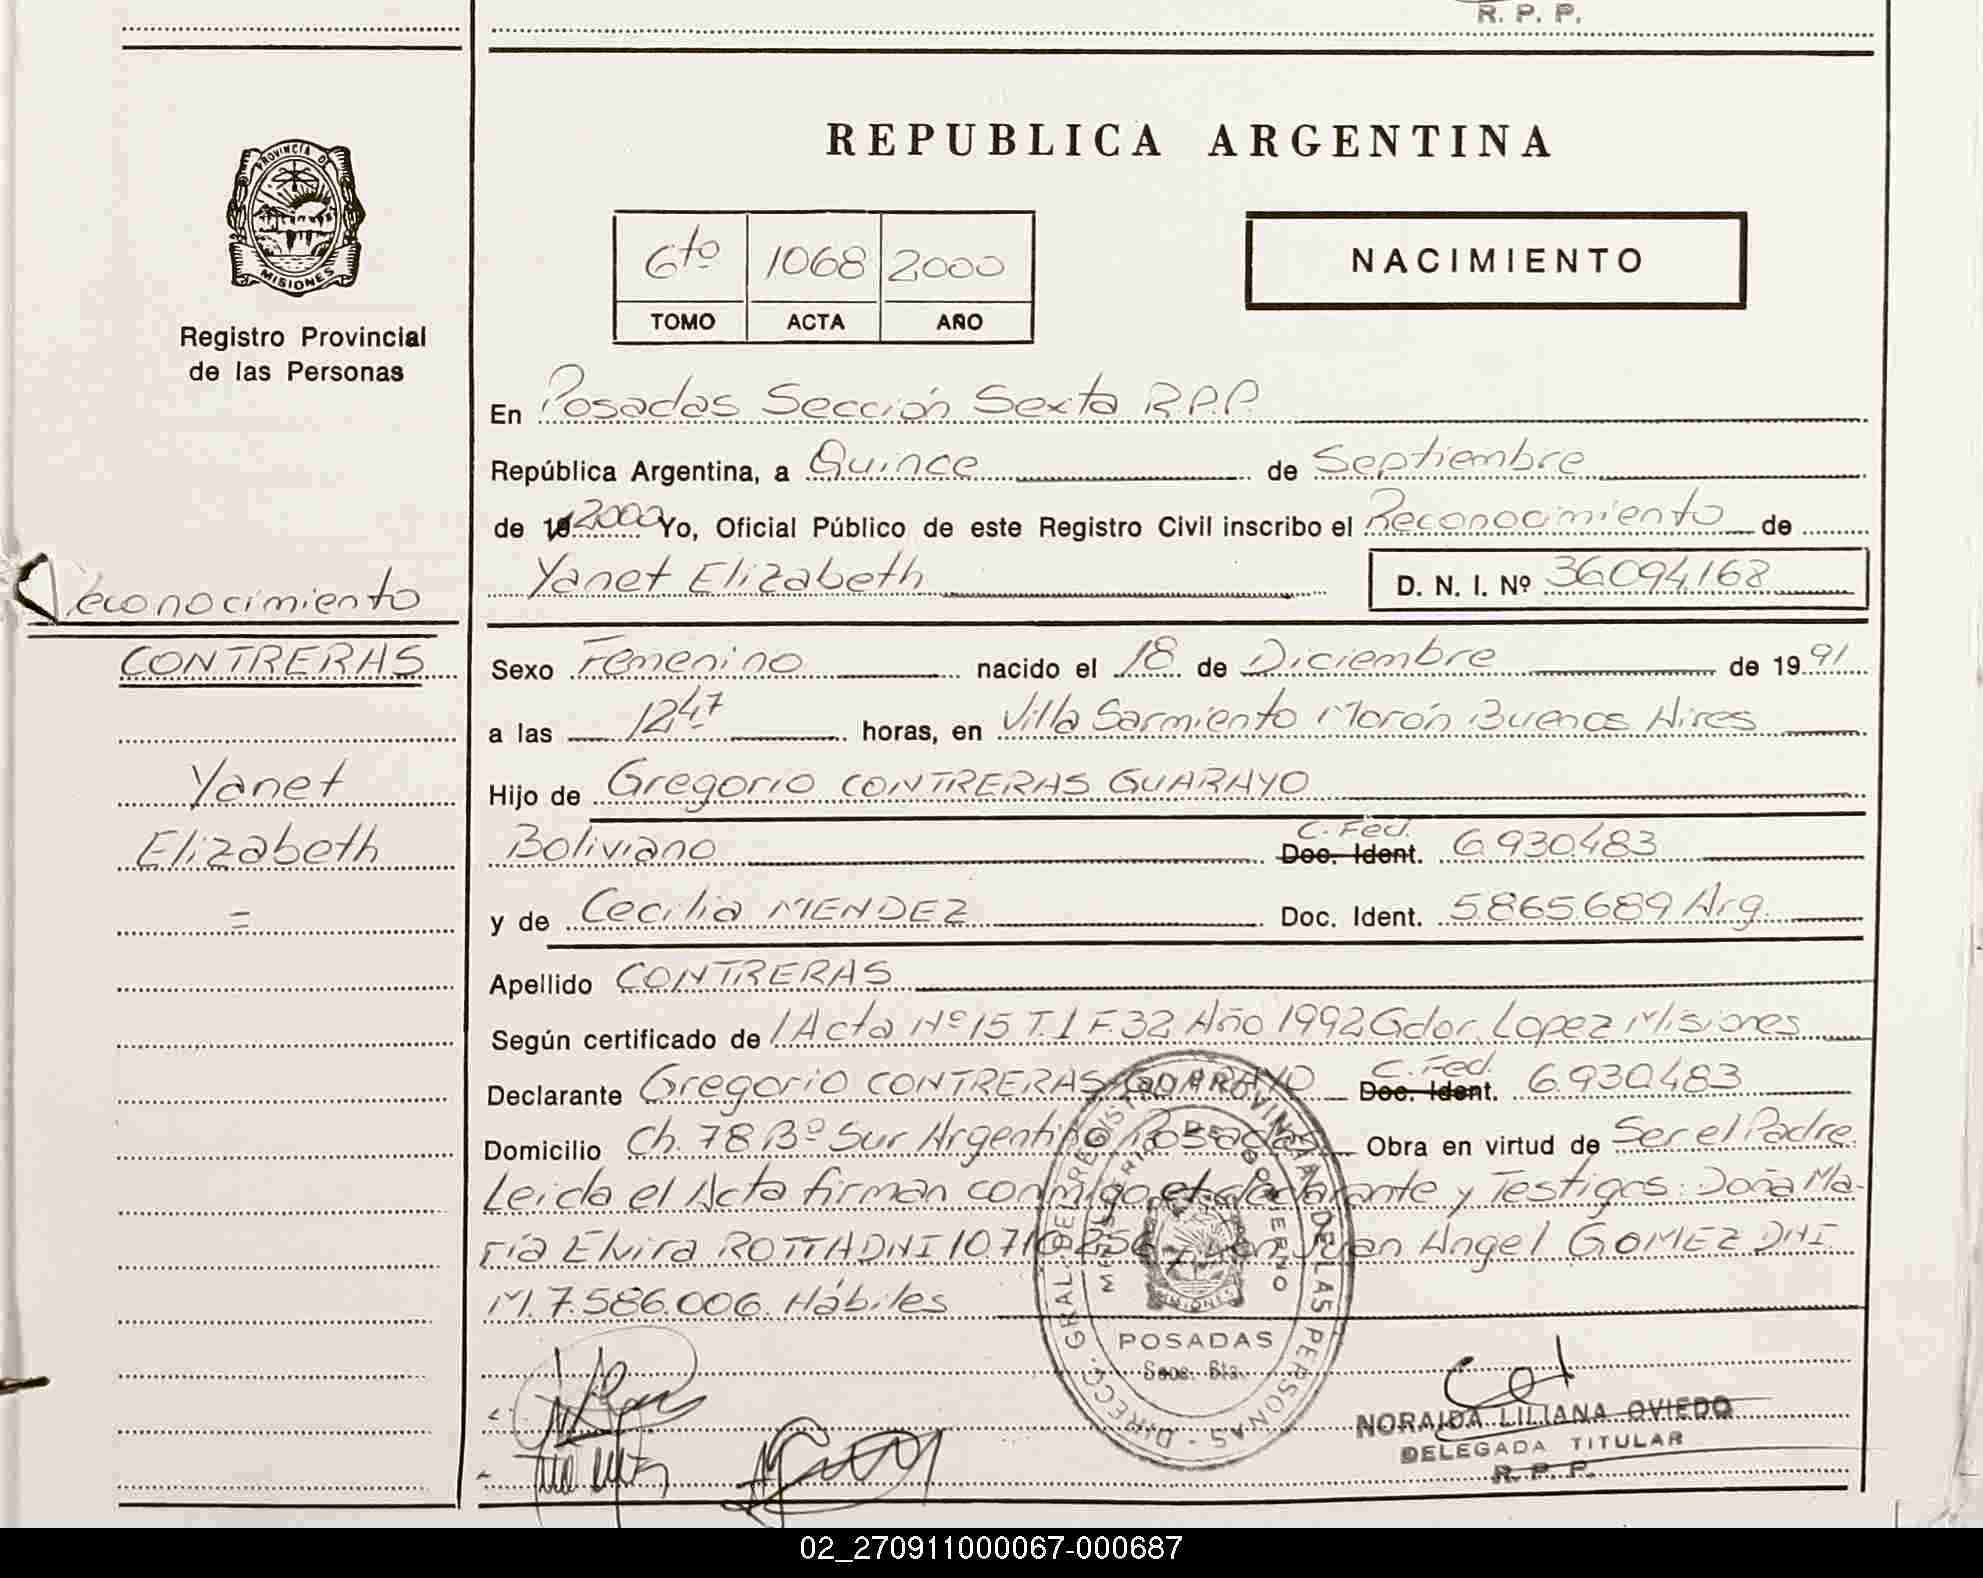 R. P. P.
REPUBLICA ARGENTINA
PROVINCIA DE
MISIONES
Registro Provincial
de las Personas
6to 1068 2000
TOMO ACTA AÑO
NACIMIENTO
En Posadas Sección Sexta R.P.P.
República Argentina, a Quince de Septiembre
de 2000 Yo, Oficial Público de este Registro Civil inscribo el Reconocimiento de
Yanet Elizabeth D. N. I. Nº 36.094.168
Reconocimiento
CONTRERAS
Yanet
Elizabeth
=
Sexo Femenino nacido el 18 de Diciembre de 1991
a las 12,47 horas, en Villa Sarmiento Morón Buenos Aires
Hijo de Gregorio CONTRERAS GUARAYO
Boliviano C. Fed. Doc. Ident. 6.930.483
y de Cecilia MENDEZ Doc. Ident. 5.865.689 Arg.
Apellido CONTRERAS
Según certificado de 1 Acta Nº 15 T. 1 F. 32 Año 1992 Gdor. Lopez Misiones
Declarante Gregorio CONTRERAS GUARAYO C. Fed. Doc. Ident. 6.930.483
Domicilio Ch. 78 Bº Sur Argentino Posadas Obra en virtud de Ser el Padre
Leida el Acta firman conmigo el declarante y Testigos: Doña Ma-
ría Elvira ROTTA DNI 10.710.256 y Don Juan Angel GOMEZ DNI
M. 7.586.006. Hábiles
DIRECC. GRAL. DEL REGISTRO PROVINCIAL DE LAS PERSONAS
MINISTERIO DE GOBIERNO
MISIONES
POSADAS
Secc. 6ta.
NORAIDA LILIANA OVIEDO
DELEGADA TITULAR
R. P. P.
02_270911000067-000687